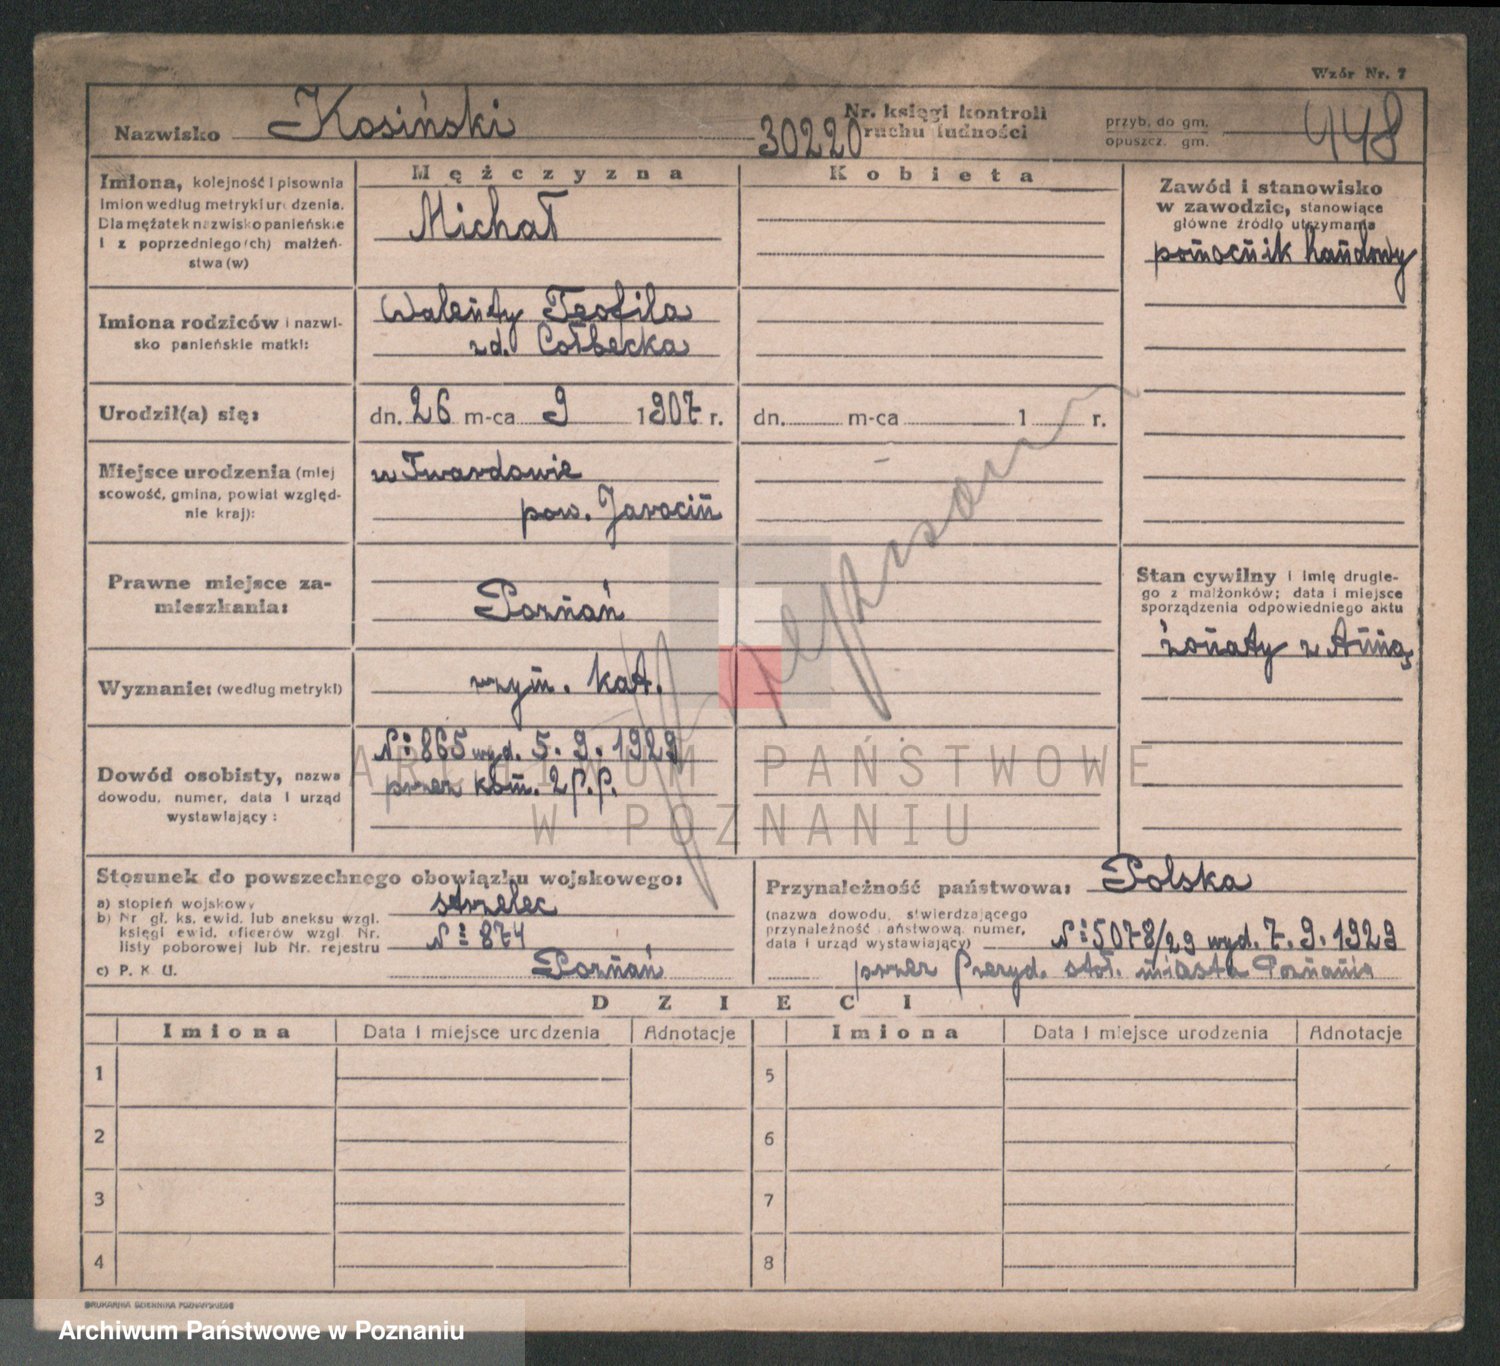 Wzór Nr. 7
Nazwisko Kosiński 30220 Nr. księgi kontroli ruchu ludności
przyb. do gm.
opuszcz. gm.
448
Imiona, kolejność i pisownia
imion według metryki urodzenia.
Dla mężatek nazwisko panieńskie
i z poprzedniego(ch) małżeń-
stwa (w)
Mężczyzna
Michał
Kobieta
Zawód i stanowisko
w zawodzie, stanowiące
główne źródło utrzymania
pomocnik handowy
Imiona rodziców i nazwi-
sko panieńskie matki:
Walenty Teofila
zd. Cołbecka
Urodził(a) się:
dn. 26 m-ca 9 1907 r.
dn. m-ca 1 r.
Miejsce urodzenia (miej
scowość, gmina, powiat względ-
nie kraj):
w Twardowie
pow. Jarocin
Prawne miejsce za-
mieszkania:
Poznań
Stan cywilny i imię drugie-
go z małżonków; data i miejsce
sporządzenia odpowiedniego aktu
żonaty z Anną
Wyznanie: (według metryki)
rzym. kat.
Dowód osobisty, nazwa
dowodu, numer, data i urząd
wystawiający:
№ 865 wyd. 5. 9. 1929
przez kom. 2 P.P.
ARCHIWUM PAŃSTWOWE
W POZNANIU
Stosunek do powszechnego obowiązku wojskowego:
a) stopień wojskowy strzelec
b) Nr gł. ks. ewid. lub aneksu wzgl.
księgi ewid. oficerów wzgl. Nr.
listy poborowej lub Nr. rejestru
№ 874
c) P. K. U. Poznań
Przynależność państwowa: Polska
(nazwa dowodu, stwierdzającego
przynależność państwową, numer,
data i urząd wystawiający)
№ 5078/29 wyd. 7. 9. 1929
przez Prezyd. stoł. miasta Poznania
DZIECI
Imiona Data i miejsce urodzenia Adnotacje Imiona Data i miejsce urodzenia Adnotacje
1 5
2 6
3 7
4 8
DRUKARNIA DZIENNIKA POZNAŃSKIEGO
Archiwum Państwowe w Poznaniu